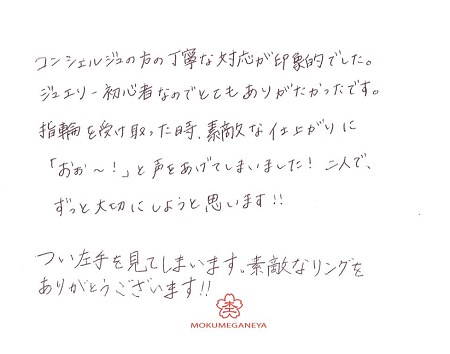 コンシェルジュの方の丁寧な対応が印象的でした。
ジュエリー初心者なのでとてもありがたかったです。
指輪を受け取った時、素敵な仕上がりに
「おぉ〜!」と声をあげてしまいました! 二人で、
ずっと大切にしようと思います!!
つい左手を見てしまいます。素敵なリングを
ありがとうございます!!
MOKUMEGANEYA